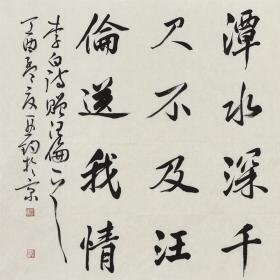 潭水深千
尺不及汪
倫送我情
李白詩贈汪倫一首
丁酉年夏月於京